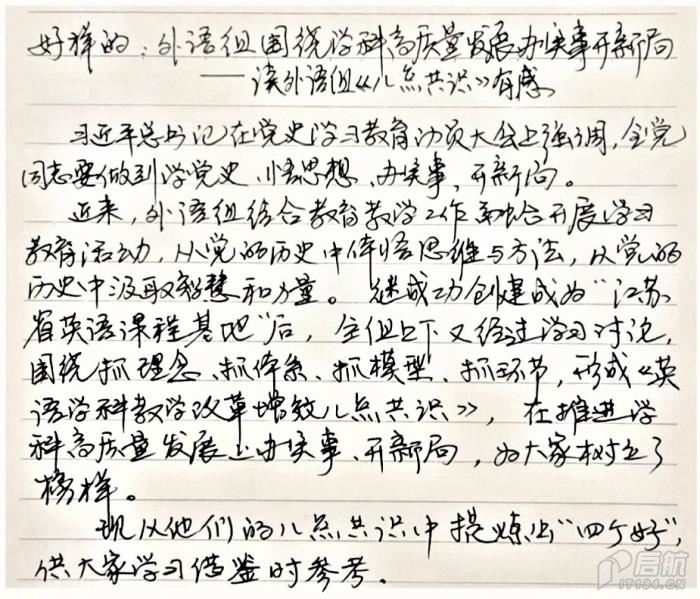 好样的：外语组围绕学科高质量发展办实事开新局
——读外语组《几点共识》有感
习近平总书记在党史学习教育动员大会上强调，全党
同志要做到学党史、悟思想、办实事、开新局。
近来，外语组结合教育教学工作融合开展学习
教育活动，从党的历史中体悟思维与方法，从党的
历史中汲取智慧和力量。继成功创建成为“江苏
省英语课程基地”后，全组上下又经过学习讨论，
围绕抓理念、抓体系、抓模型、抓环节，形成《英
语学科教学改革增效几点共识》，在推进学
科高质量发展上办实事、开新局，为大家树立了
榜样。
现从他们的几点共识中提炼出“四个好”，
供大家学习借鉴时参考。
启航
IT184.CN